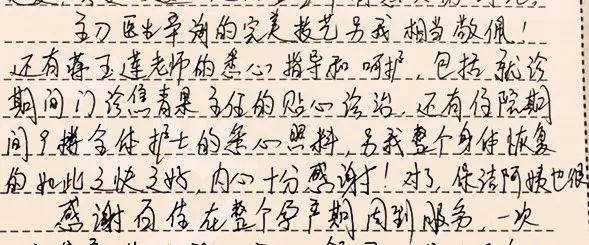 主刀医生辛翔的完美技艺另我相当敬佩！
还有蒋玉莲老师的悉心指导和呵护，包括就诊
期间门诊焦青果主任的贴心诊治，还有住院期
间9楼全体护士的悉心照料，另我整个身体恢复
的如此之快之好，内心十分感谢！对了，保洁阿姨也很
感谢百佳在整个孕产期周到服务，一次